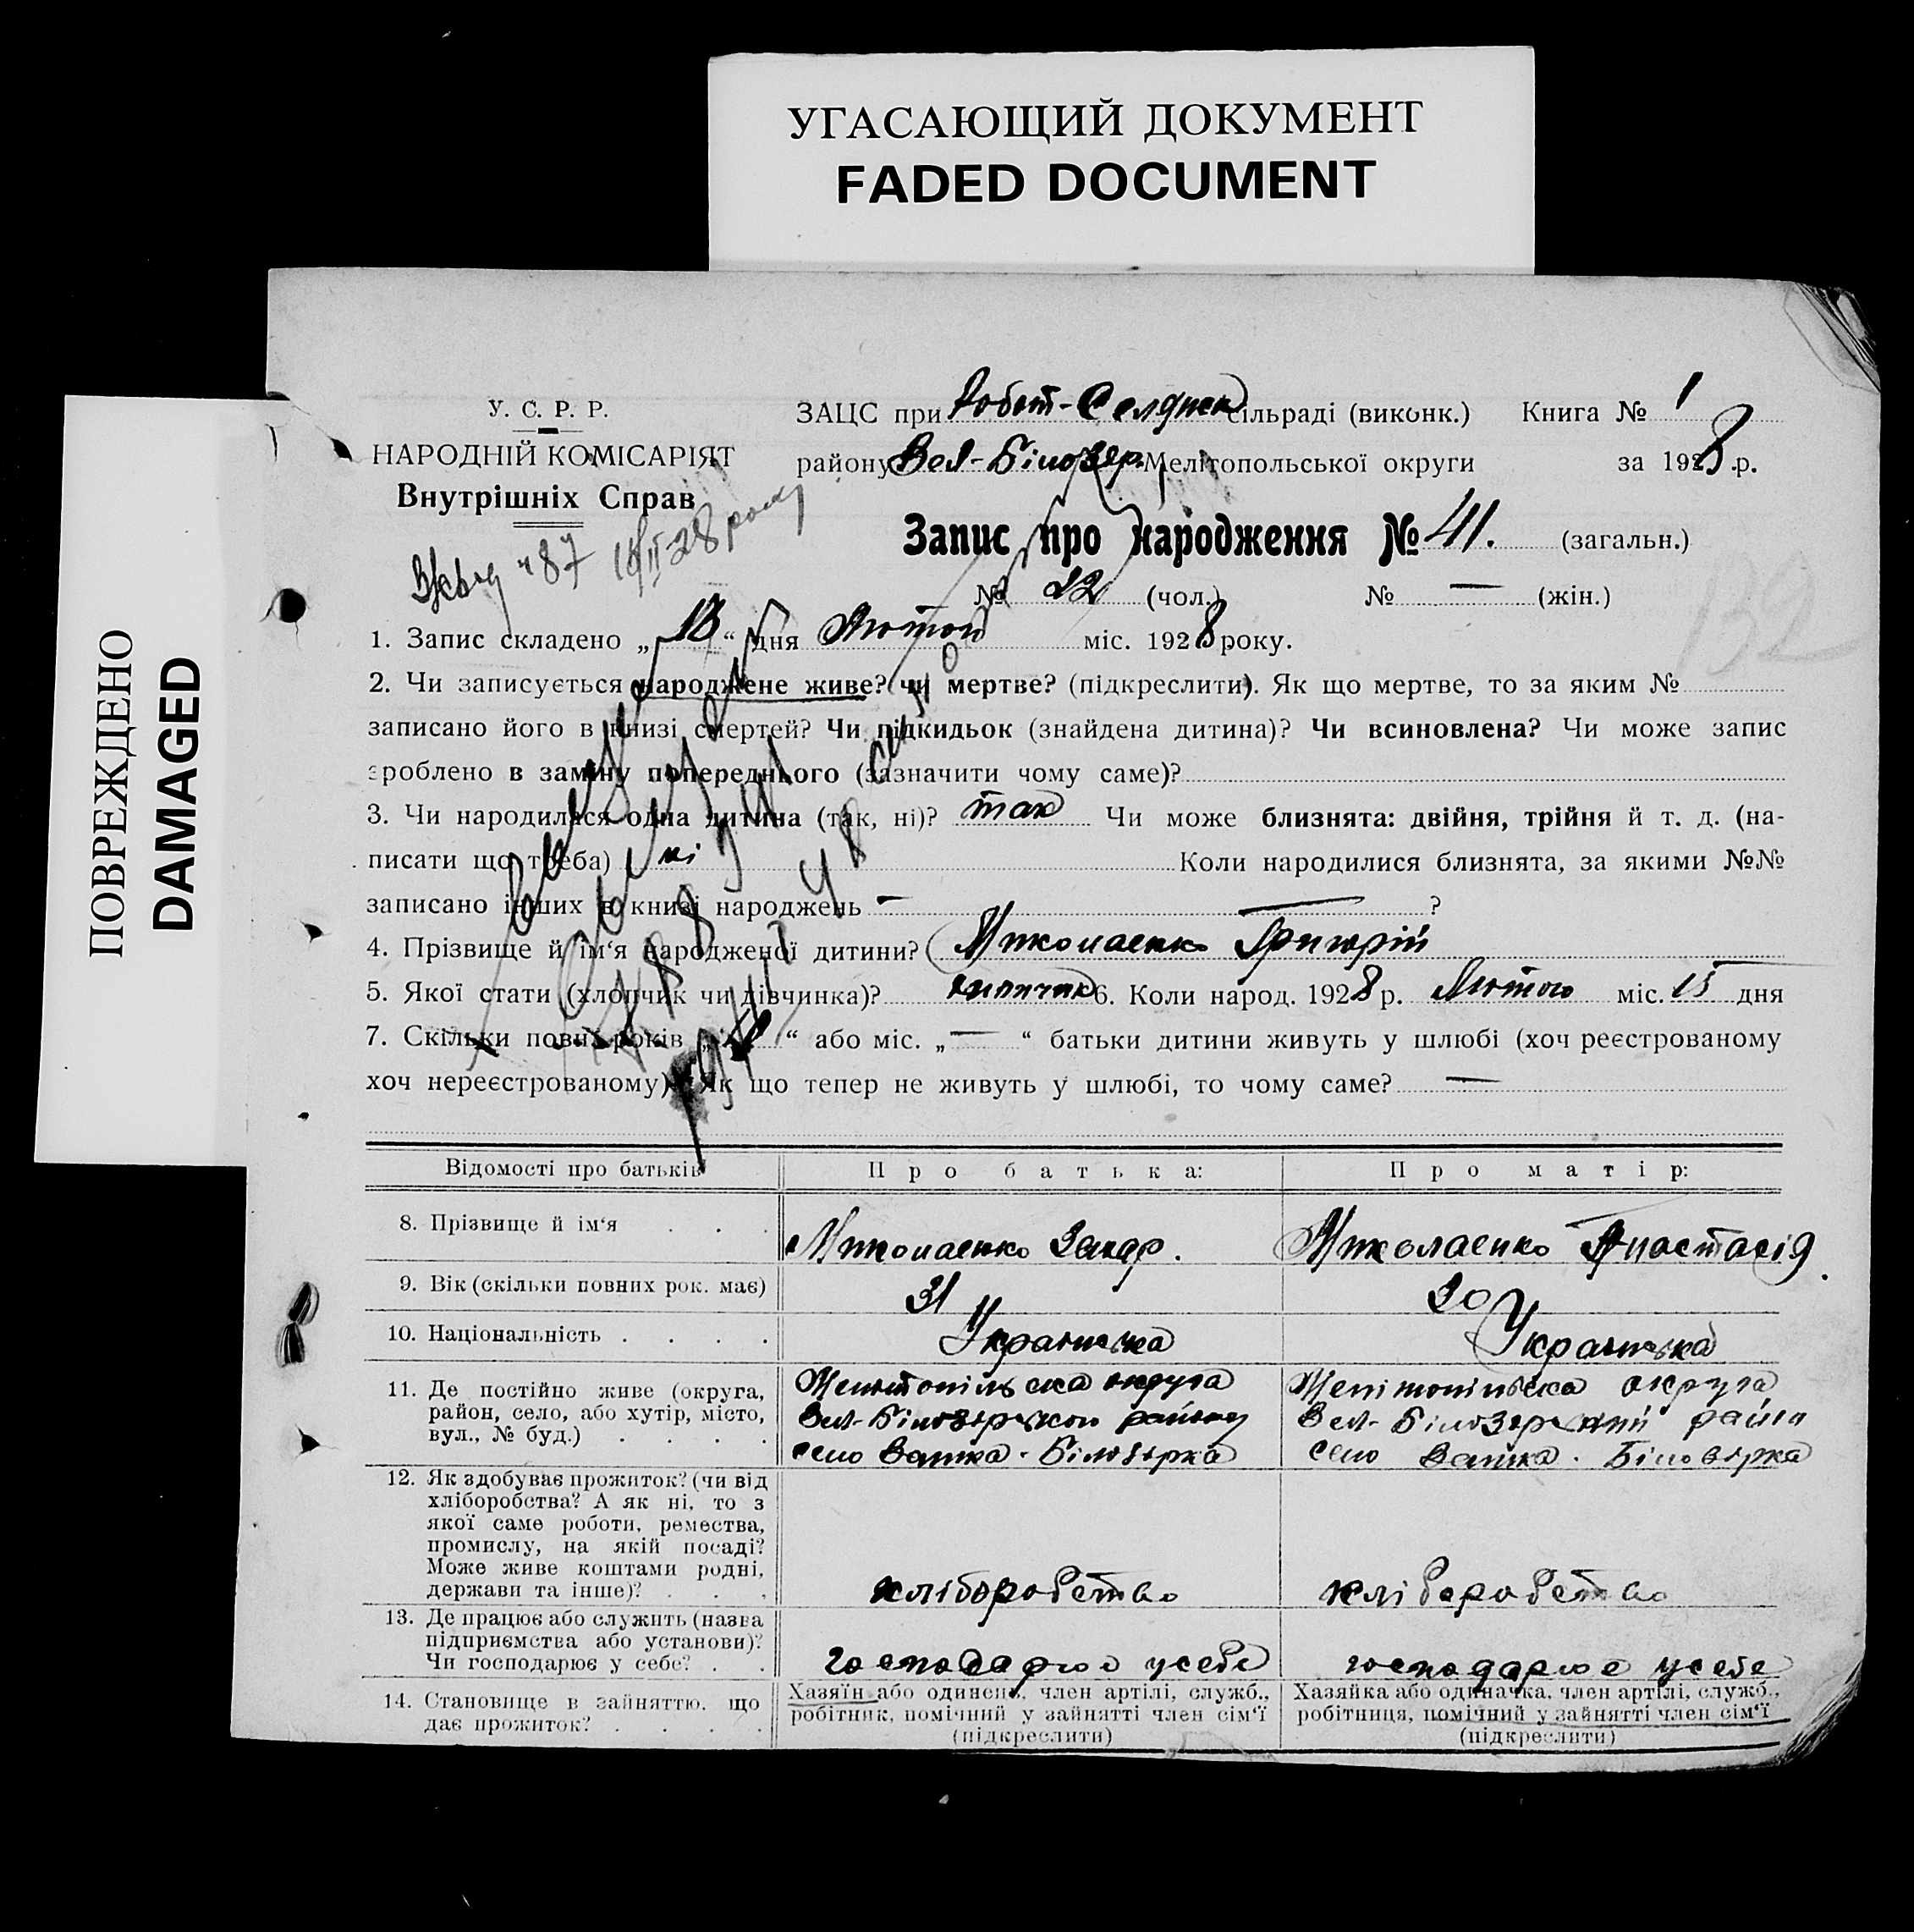 УГАСАЮЩИЙ ДОКУМЕНТ
FADED DOCUMENT
ПОВРЕЖДЕНО
DAMAGED
У. С. Р. Р.
НАРОДНІЙ КОМІСАРІЯТ
Внутрішніх Справ
ЗАЦС при Робот-Селянск сільраді (виконк.) Книга № 1
району Вел-Білозер. Мелітопольської округи за 1928 р.
Запис про народження № 41. (загальн.)
№ 22 (чол.) № — (жін.)
87 28 року
132
1. Запис складено „18“ дня Лютого міс. 1928 року.
2. Чи записується народжене живе? чи мертве? (підкреслити). Як що мертве, то за яким №
записано його в книзі смертей? Чи підкидьок (знайдена дитина)? Чи всиновлена? Чи може запис
зроблено в заміну попереднього (зазначити чому саме)?
3. Чи народилася одна дитина (так, ні)? так Чи може близнята: двійня, трійня й т. д. (на-
писати що треба) ні Коли народилися близнята, за якими №№
записано інших в книзі народжень — ?
4. Прізвище й ім‘я народженої дитини? Миколаенко Григорій
5. Якої стати (хлопчик чи дівчинка)? хлопчик 6. Коли народ. 1928 р. Лютого міс. 15 дня
7. Скільки повн. років „ “ або міс. „—“ батьки дитини живуть у шлюбі (хоч реєстрованому
хоч нереєстрованому)? Як що тепер не живуть у шлюбі, то чому саме? —
Відомості про батьків Про батька: Про матір:
8. Прізвище й ім‘я . . . Миколаенко Захар. Миколаенко Анастасія.
9. Вік (скільки повних рок. має) 31 30
10. Національність . . . . Українська Українська
11. Де постійно живе (округа,
район, село, або хутір, місто,
вул., № буд.) . . . .
Мелітопільська округа
Вел-Білозірського району
село Велика-Білозірка
Мелітопільська округа
Вел-Білозірський район
село Велика-Білозірка
12. Як здобуває прожиток? (чи від
хліборобства? А як ні, то з
якої саме роботи, ремества,
промислу, на якій посаді?
Може живе коштами родні,
держави та інше)? . . .
хліборобство хліборобство
13. Де працює або служить (назва
підприємства або установи)?
Чи господарює у себе? . .
господарює усебе господарює усебе
14. Становище в зайняттю, що
дає прожиток? . . . .
Хазяїн або одинець, член артілі, служб.,
робітник, помічний у зайнятті член сім‘ї
(підкреслити)
Хазяйка або одиначка, член артілі, служб.,
робітниця, помічний у зайнятті член сім‘ї
(підкреслити)